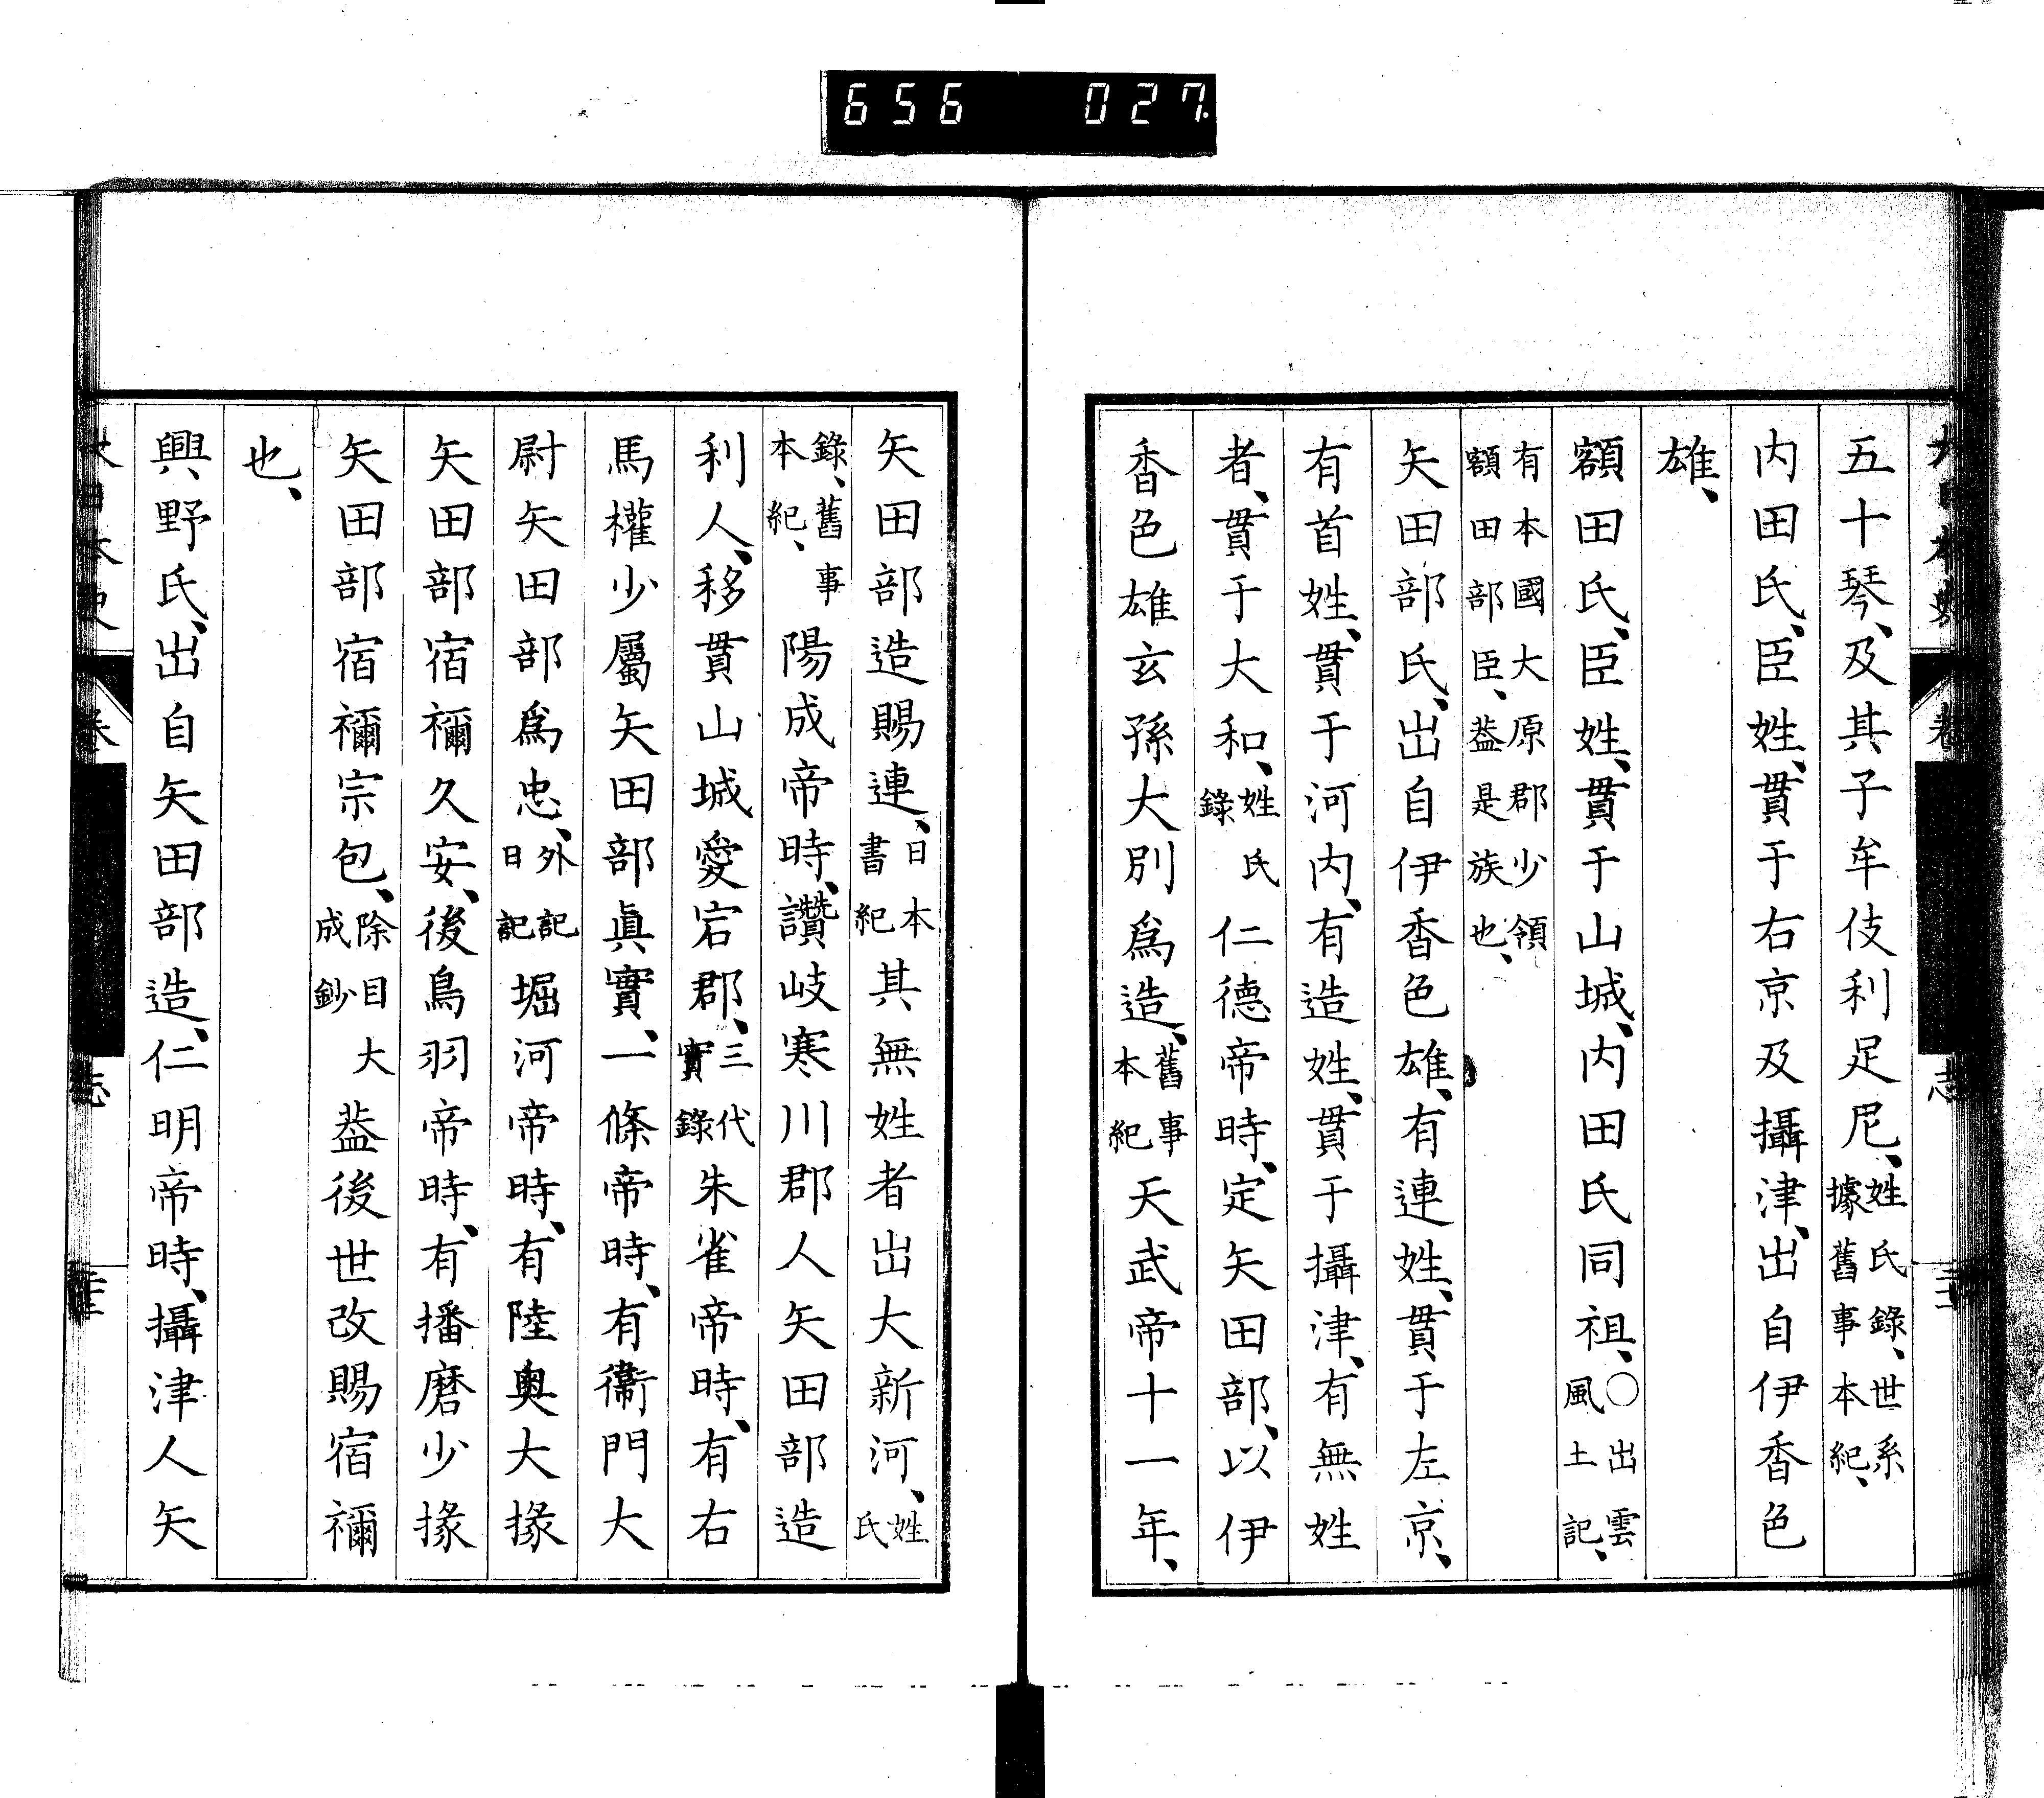 656 027
五十琴、及其子牟伎利足尼、姓氏錄、世系據舊事本紀、
内田氏、臣姓、貫于右京及攝津、出自伊香色
雄、
額田氏、臣姓、貫于山城、内田氏同祖、〇出雲風土記、
有本國大原郡少領額田部臣、葢是族也、
矢田部氏、出自伊香色雄、有連姓、貫于左京、
有首姓、貫于河内、有造姓、貫于攝津、有無姓
者、貫于大和、姓氏錄仁德帝時、定矢田部、以伊
香色雄玄孫大別爲造、舊事本紀天武帝十一年、
矢田部造賜連、日本書紀其無姓者出大新河、姓氏
錄、舊事本紀、陽成帝時、讚岐寒川郡人矢田部造
利人、移貫山城愛宕郡、三代實錄朱雀帝時、有右
馬權少屬矢田部眞實、一條帝時、有衞門大
尉矢田部爲忠、外記日記堀河帝時、有陸奥大掾
矢田部宿禰久安、後鳥羽帝時、有播磨少掾
矢田部宿禰宗包、除目大成鈔葢後世改賜宿禰
也、
興野氏、出自矢田部造、仁明帝時、攝津人矢
大日本史 卷 志